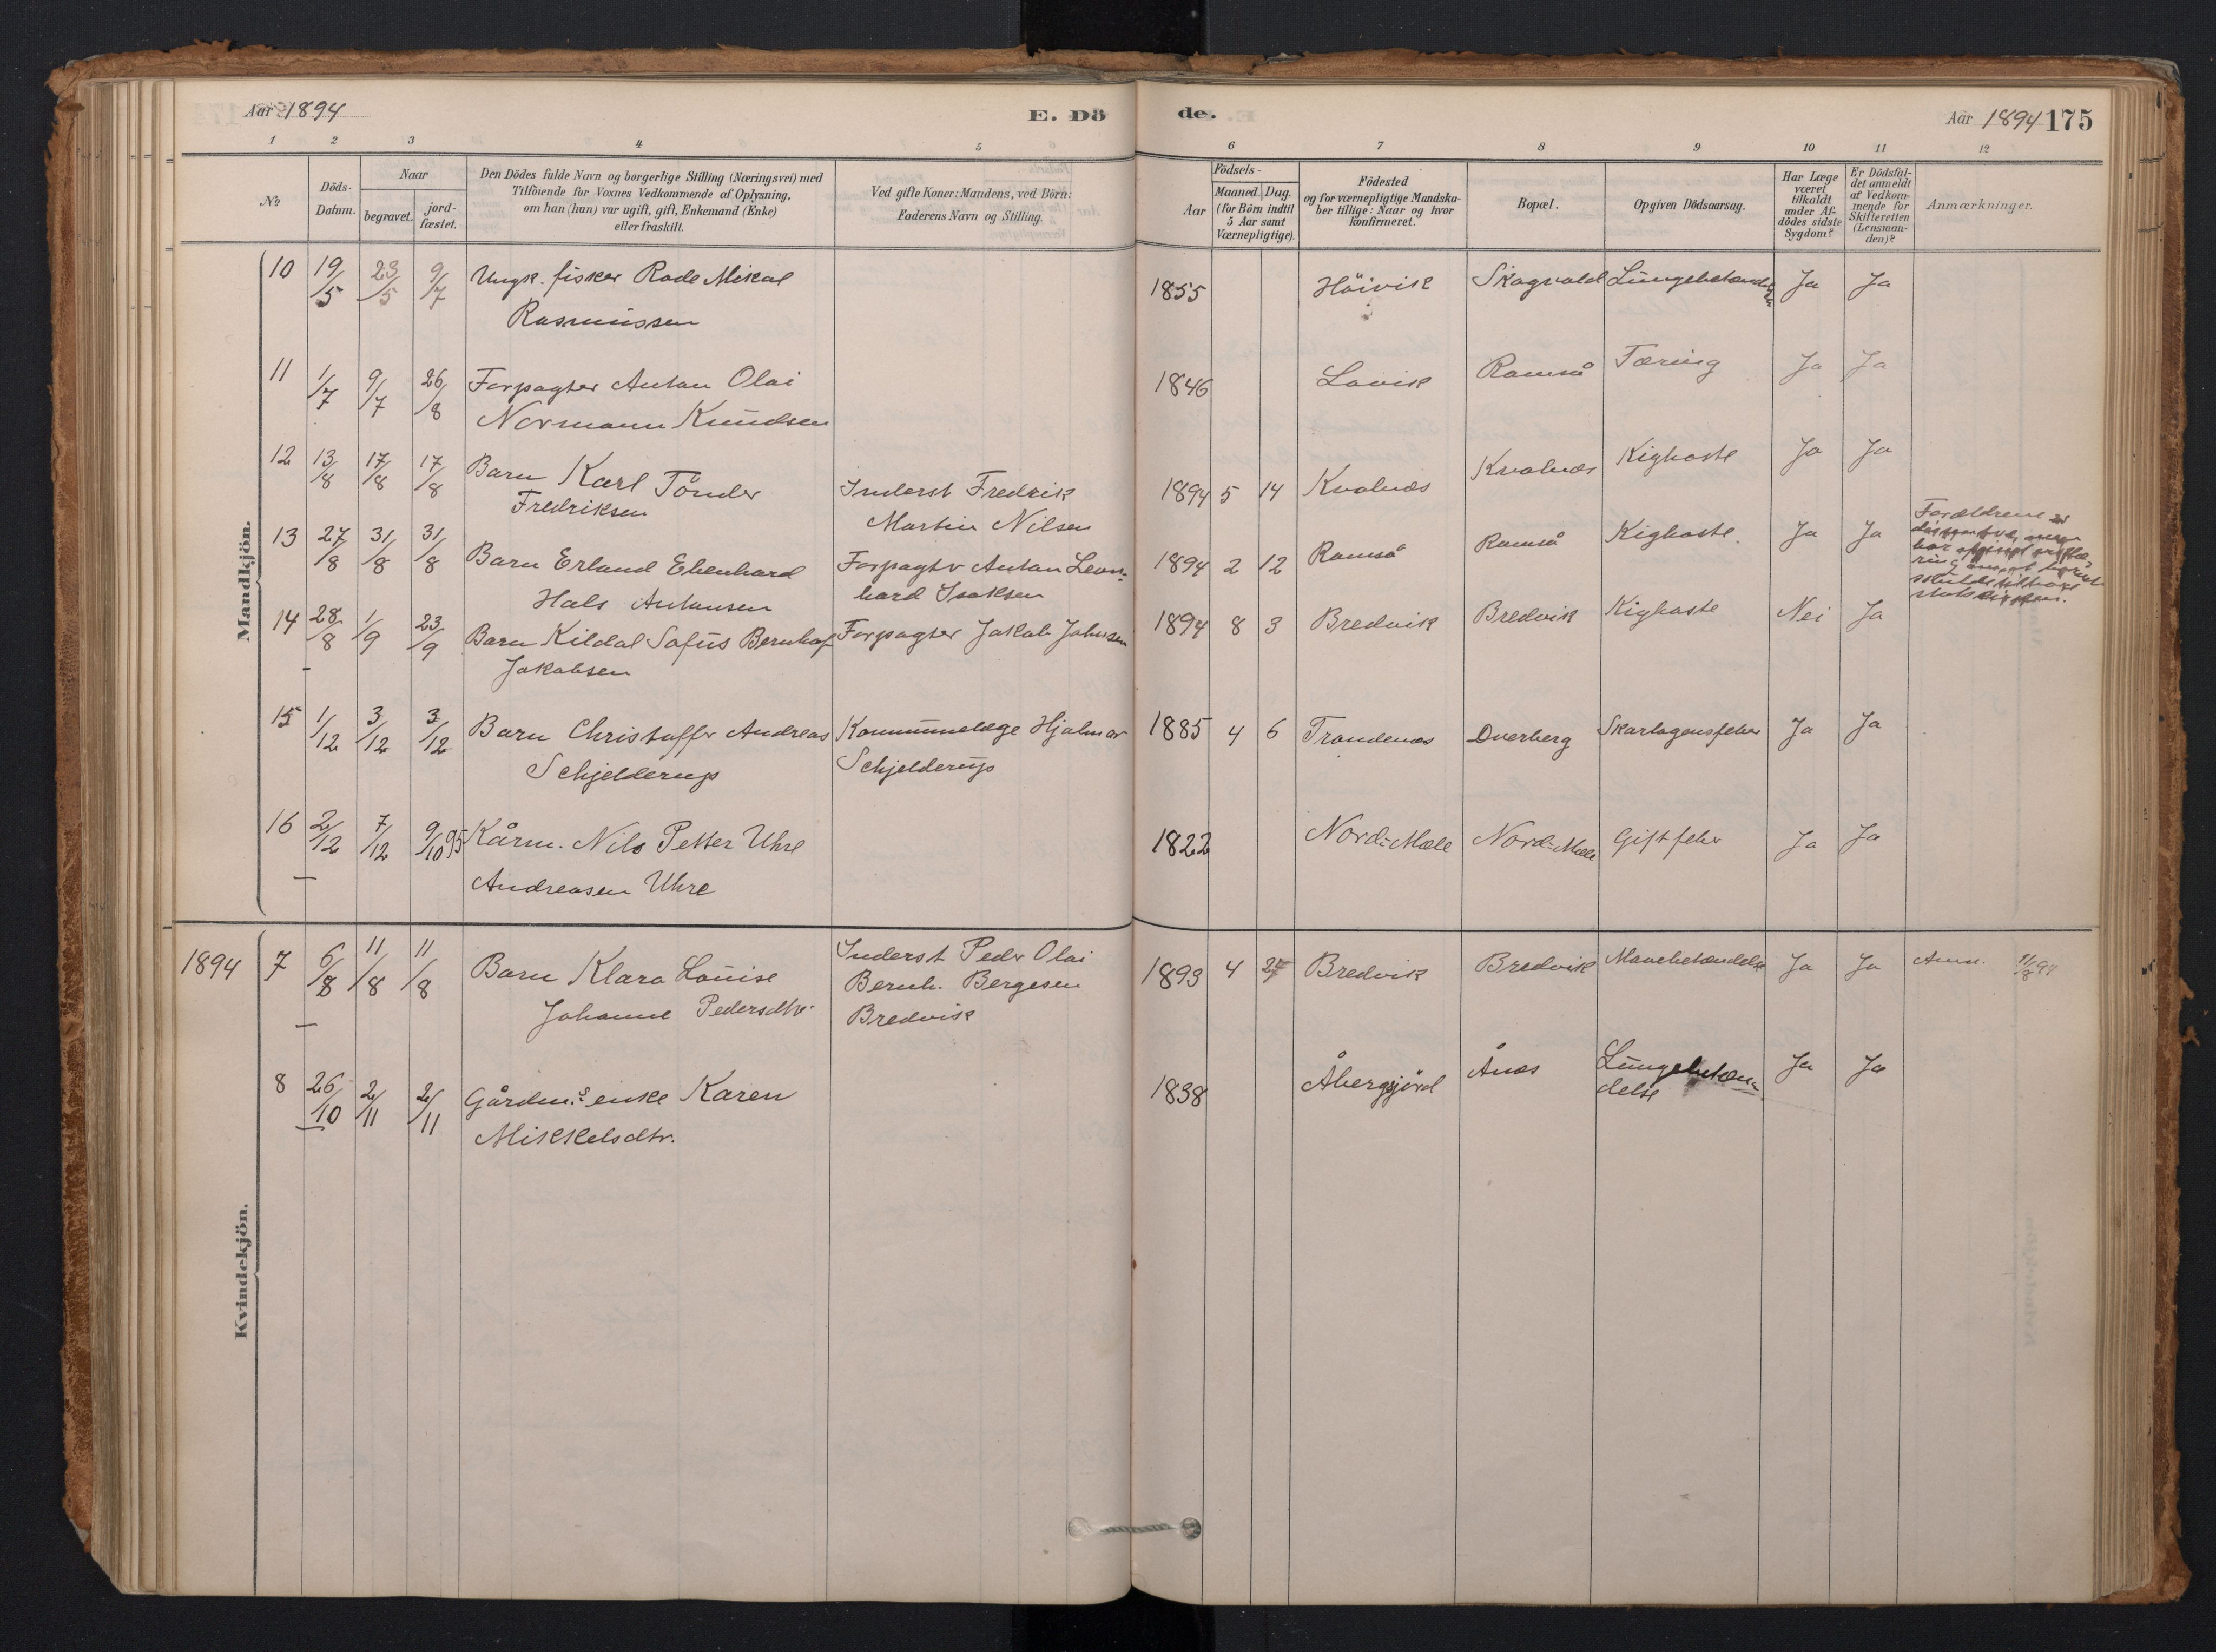 Aar 1894
E. Dö
de.
Aar 1894
175
1 2 3 4 5
6 7 8 9 10 11 12
No
Döds-
Datum.
Naar
begravet.
jord-
fæstet.
Den Dödes fulde Navn og borgerlige Stilling (Næringsvei) med
Tilföiende for Voxnes Vedkommende af Oplysning,
om han (hun) var ugift, gift, Enkemand (Enke)
eller fraskilt.
Ved gifte Koner: Mandens, ved Börn:
Faderens Navn og Stilling.
Födsels-
Aar
Maaned. Dag.
(for Börn indtil
5 Aar samt
Værnepligtige).
Födested
og for værnepligtige Mandska-
ber tillige: Naar og hvor
konfirmeret.
Bopæl.
Opgiven Dödsaarsag.
Har Læge
været
tilkaldt
under Af-
dödes sidste
Sygdom?
Er Dödsfal-
det anmeldt
af Vedkom-
mende for
Skifteretten
(Lensman-
den)?
Anmærkninger.
Mandkjön.
10 19/5 23/5 9/7 Ungk. fisker Rode Mikal 1855 Höivik Skogvold Lungebetændelse Ja Ja
Rasmussen
11 1/7 9/7 26/8 Forpagter Anton Olai 1846 Lovik Ramså Tæring Ja Ja
Normann Knudsen
12 13/8 17/8 17/8 Barn Karl Tönder Inderst Fredrik 1894 5 14 Kvalnæs Kvalnæs Kighoste Ja Ja
Fredriksen Martin Nilsen
13 27/8 31/8 31/8 Barn Erland Ebenhard Forpagtr Anton Leon- 1894 2 12 Ramså Ramså Kighoste. Ja Ja Forældrene er
Hals Antonsen hard Isaksen
14 28/8 1/9 23/9 Barn Kildal Sofus Bernhof Forpagter Jakob Johnsen 1894 8 3 Bredvik Bredvik Kighoste Nei Ja
Jakobsen
15 1/12 3/12 3/12 Barn Christoffer Andreas Kommunelæge Hjalmar 1885 4 6 Trondenæs Dverberg Skarlagensfeber Ja Ja
Schjelderup Schjelderup
16 2/12 7/12 9/10 95 Kårm. Nils Petter Uhre 1822 Nord-Mæle Nord-Mæle Giftfeber Ja Ja
Andreasen Uhre
Kvindekjön.
1894 7 6/8 11/8 11/8 Barn Klara Louise Inderst Pedr Olai 1893 4 27 Bredvik Bredvik Mavebetændelse Ja Ja Anm. 11/8 94
Johanne Pedersdtr. Bernh. Bergesen
Bredvik
8 26/10 2/11 2/11 Gårdm.s enke Karen 1838 Åbergsjord Ånæs Lungebetæn- Ja Ja
Mikkelsdtr. delse